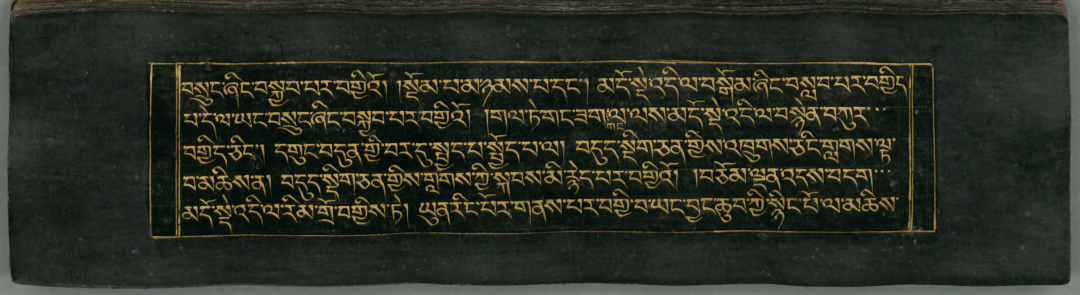 བསྲུང་ཞིང་བསྐྱབ་པར་བགྱིའོ། །སྡོམ་པ་མ་ཉམས་པ་དང་། མདོ་སྡེ་འདི་ལ་བསྒོམ་ཞིང་བསླབ་པར་བགྱིད
པ་དེ་ལ་ཡང་བསྲུང་ཞིང་བསྐྱབ་པར་བགྱིའོ། །གལ་ཏེ་གང་ཟག་ལ་ལས་མདོ་སྡེ་འདི་ལ་བསྙེན་བཀུར་
བགྱིད་ཅིང་། དགུང་བདུན་གྱི་བར་དུ་སྤྱད་པ་སྤྱོད་པ་ལ། བདུད་སྡིག་ཅན་གྱིས་འཁྲུགས་ཅིང་གླགས་ལྟ
བ་མཆིས་ན། བདུད་སྡིག་ཅན་གྱིས་གླགས་ཀྱི་སྐབས་མི་རྙེད་པར་བགྱིའོ། །བཅོམ་ལྡན་འདས་བདག་
མདོ་སྡེ་འདི་ལ་རིམ་གྲོ་བགྱིས་ཏེ། ཡུན་རིང་པོར་གནས་པར་བགྱི་བ་ཡང་བྱང་ཆུབ་ཀྱི་སྙིང་པོ་ལ་མཆིས་